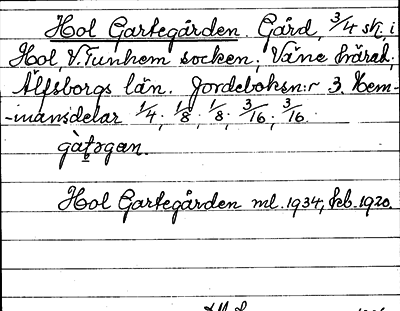 Hol Gartegården. Gård, 3/4 sk, i
Hol, V. Tunhem socken, Väne härad,
Älfsborgs län. Jordeboksn:r 3. Hem-
-mansdelar 1/4; 1/8; 1/8; 3/16; 3/16.
gàtɘgan.
Hol Gartegården ml. 1934, kb. 1920.